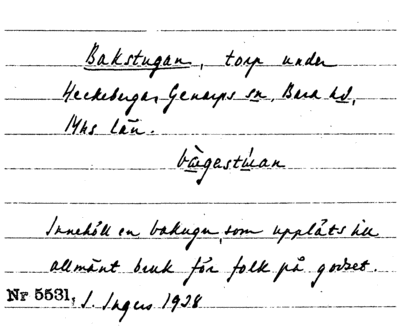 Bakstugan, torp under
Heckeberga, Genarps sn, Bara hd,
Mhs län.
Innehöll en bakugn, som upplåts till
allmänt bruk för folk på godset.
Nr 5531. I. Ingers 1928